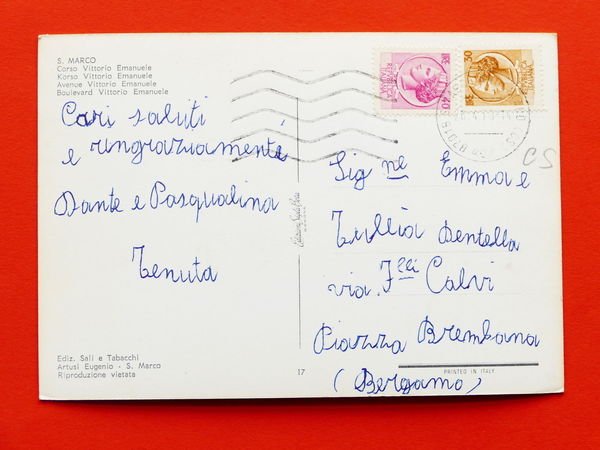 S. MARCO
Corso Vittorio Emanuele
Korso Vittorio Emanuele
Avenue Vittorio Emanuele
Boulevard Vittorio Emanuele
Cari saluti
e ringraziamenti
Dante e Pasqualina
Tenuta
Sig.ne Emma e
Tullia Dentella
via F.lli Calvi
Piazza Brembana
(Bergamo)
CS
Ediz. Sali e Tabacchi
Artusi Eugenio - S. Marco
Riproduzione vietata
17
PRINTED IN ITALY